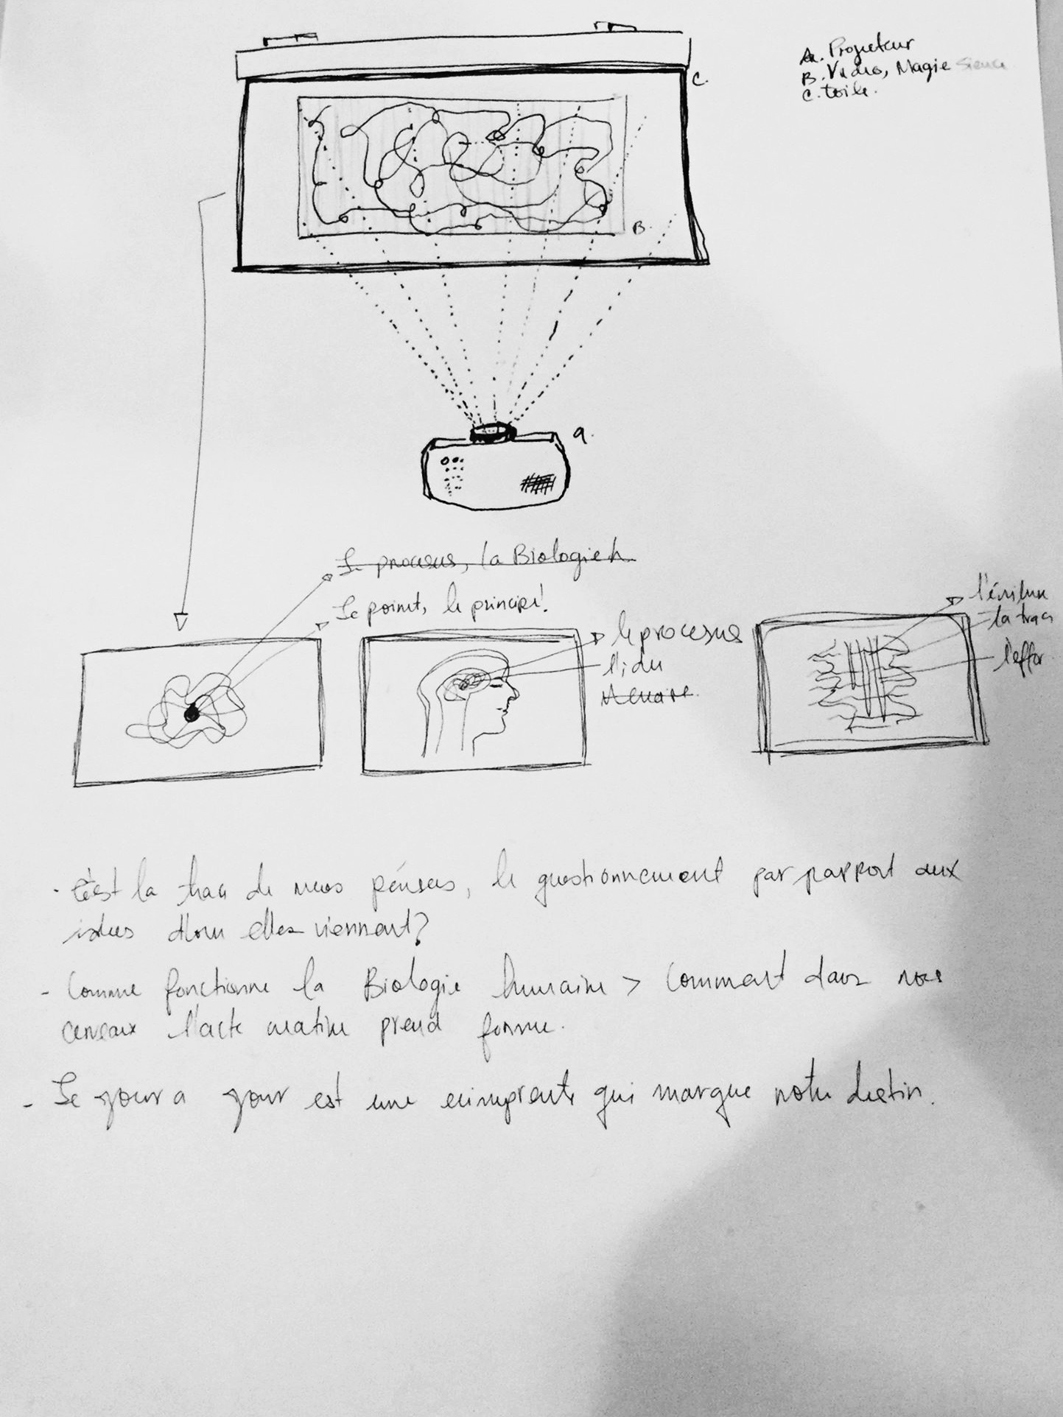 A. Projeteur
B. Video, Magie
C. toile.
C.
B.
a.
Le procesus, la Biologie h
Le point, le principe!
le procesus
l'idee
l'évolux
la trace
l'effor
. C'est la trace de nous pensées, le questionnement par rapport aux
idées d'lou elles viennent?
- Comme fonctionne la Biologie humaine > Comment dans nos
cerveaux l'acte creative prend forme.
- Le jour a jour est une eimprente qui marque notre destin.